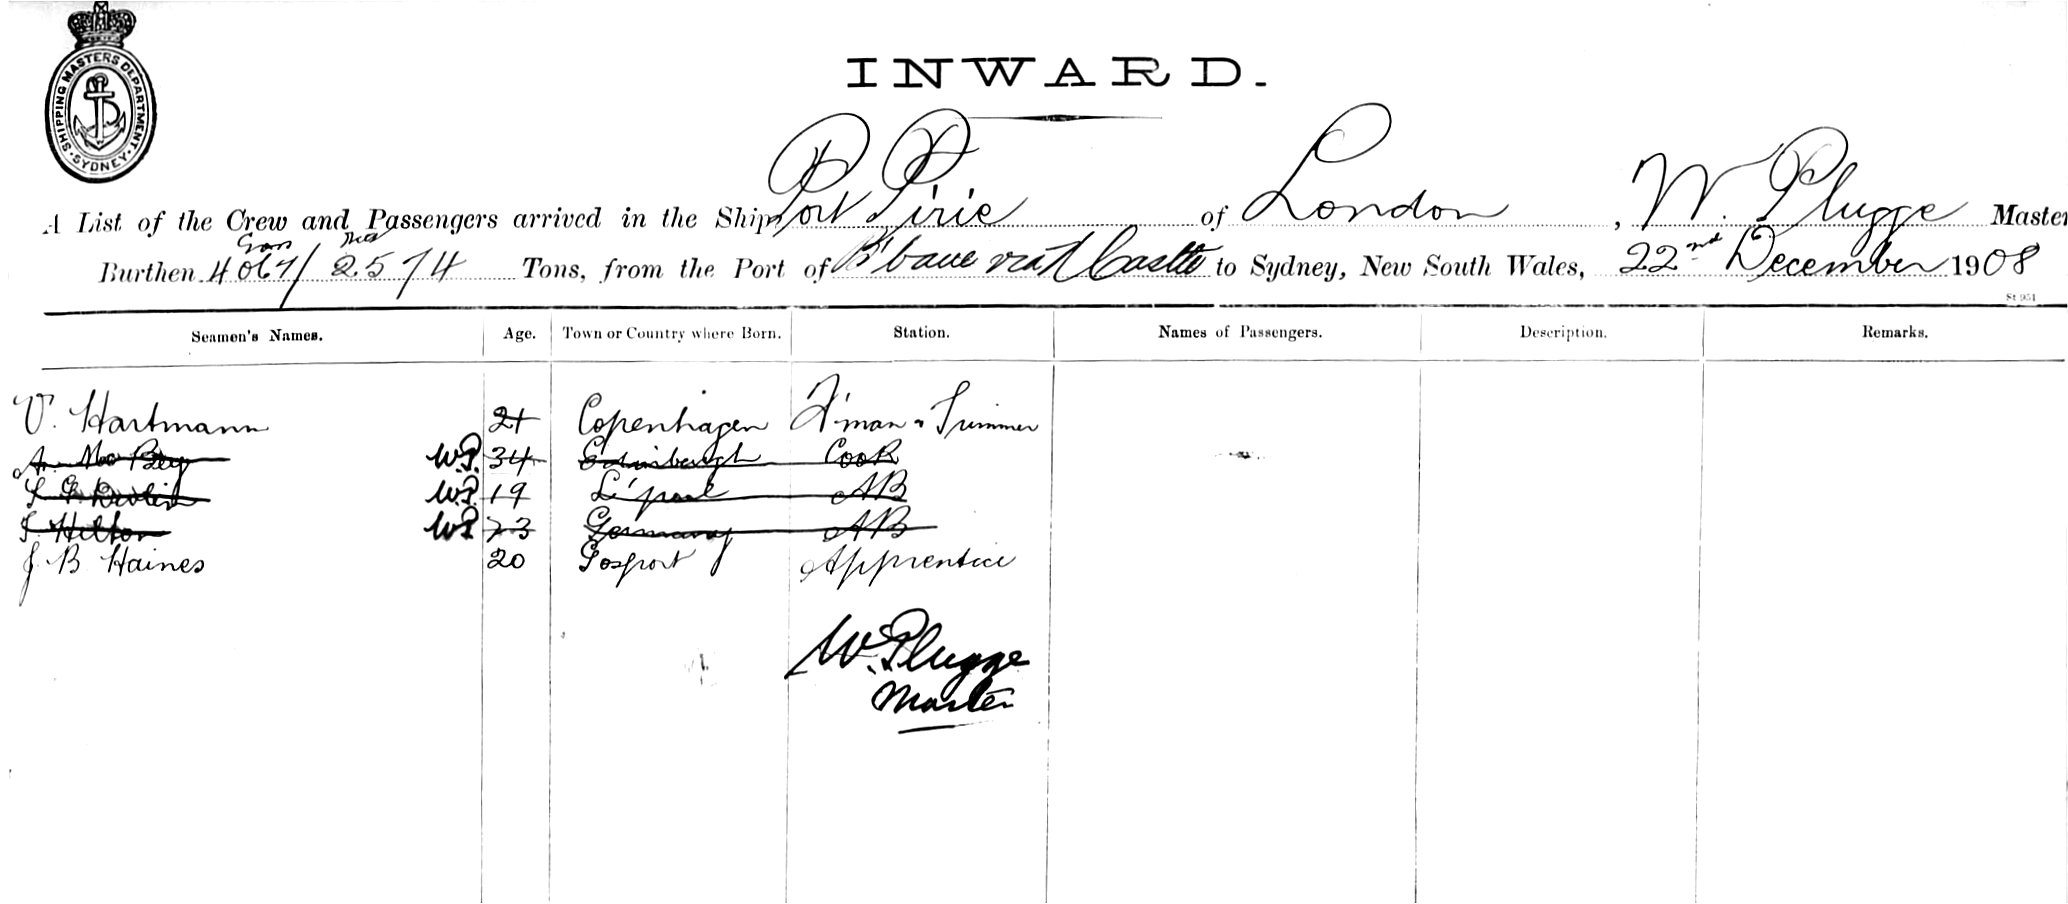 SHIPPING MASTERS DEPARTMENT
SYDNEY
INWARD.
A List of the Crew and Passengers arrived in the Ship Port Pirie of London, W. Plugge Master
Gross
Burthen / 2574 Tons, from the Port of B'bane via N Castle to Sydney, New South Wales, 22nd December 1908
St 951
Seamen's Names. Age. Town or Country where Born. Station. Names of Passengers. Description. Remarks.
V. Hartmann 21 Copenhagen F'man & Trimmer
A. W.P. 34 Edinburgh Cook
W.P. 19 L'pool AB
Hilton W.P. 23 Germany AB
J B Haines 20 Gosport Apprentice
W. Plugge
Master